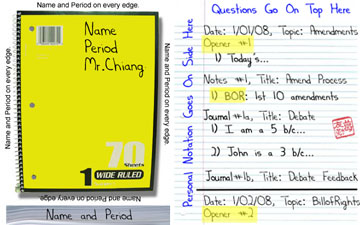 Name and Period on every edge.
Name and Period on every edge.
Name
Period
Mr.Chiang
Name and Period on every edge.
70
Sheets
1 WIDE RULED
Name and Period on every edge.
Name and Period
Questions Go On Top Here
Personal Notation Goes On Side Here
Date: 1/01/08, Topic: Amendments
Opener #1
1) Today's...
Notes #1, Title: Amend Process
1) BOR: 1st 10 amendments
Journal #1a, Title: Debate
1) I am a 5 b/c...
2) John is a 3 b/c...
Journal #1b, Title: Debate Feedback
Date: 1/02/08, Topic: BillofRights
Opener #2